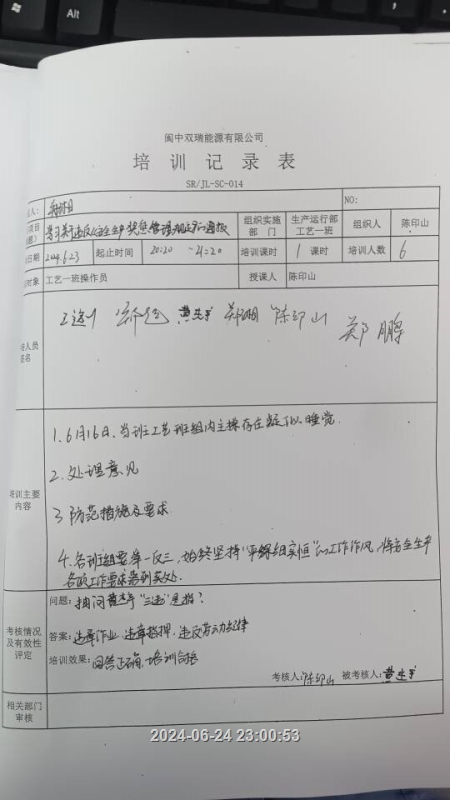 Alt
阆中双瑞能源有限公司
培训记录表
SR/JL-SC-014
人: NO:
项目 学习关于违反安全生产奖惩管理规定的通报 组织实施部门 生产运行部工艺一班 组织人 陈印山
日期 2024.6.23 起止时间 20:20 -21:20 培训课时 1 课时 培训人数 6
对象 工艺一班操作员 授课人 陈印山
人员签名 郑湖 陈印山 郑鹏
培训主要内容
1.6月16日,当班工艺班组内主操存在疑似睡觉.
2.处理意见
3 防范措施及要求
4.各班组要举一反三,始终坚持"平稳细实恒"的工作作风,将安全生产
各项工作要求落到实处.
考核情况及有效性评定
问题: 抽问 "三违"是指?
答案: 违章作业,违章指挥,违反劳动纪律
培训效果: 回答正确,培训合格
考核人: 陈印山 被考核人:
相关部门审核
2024-06-24 23:00:53